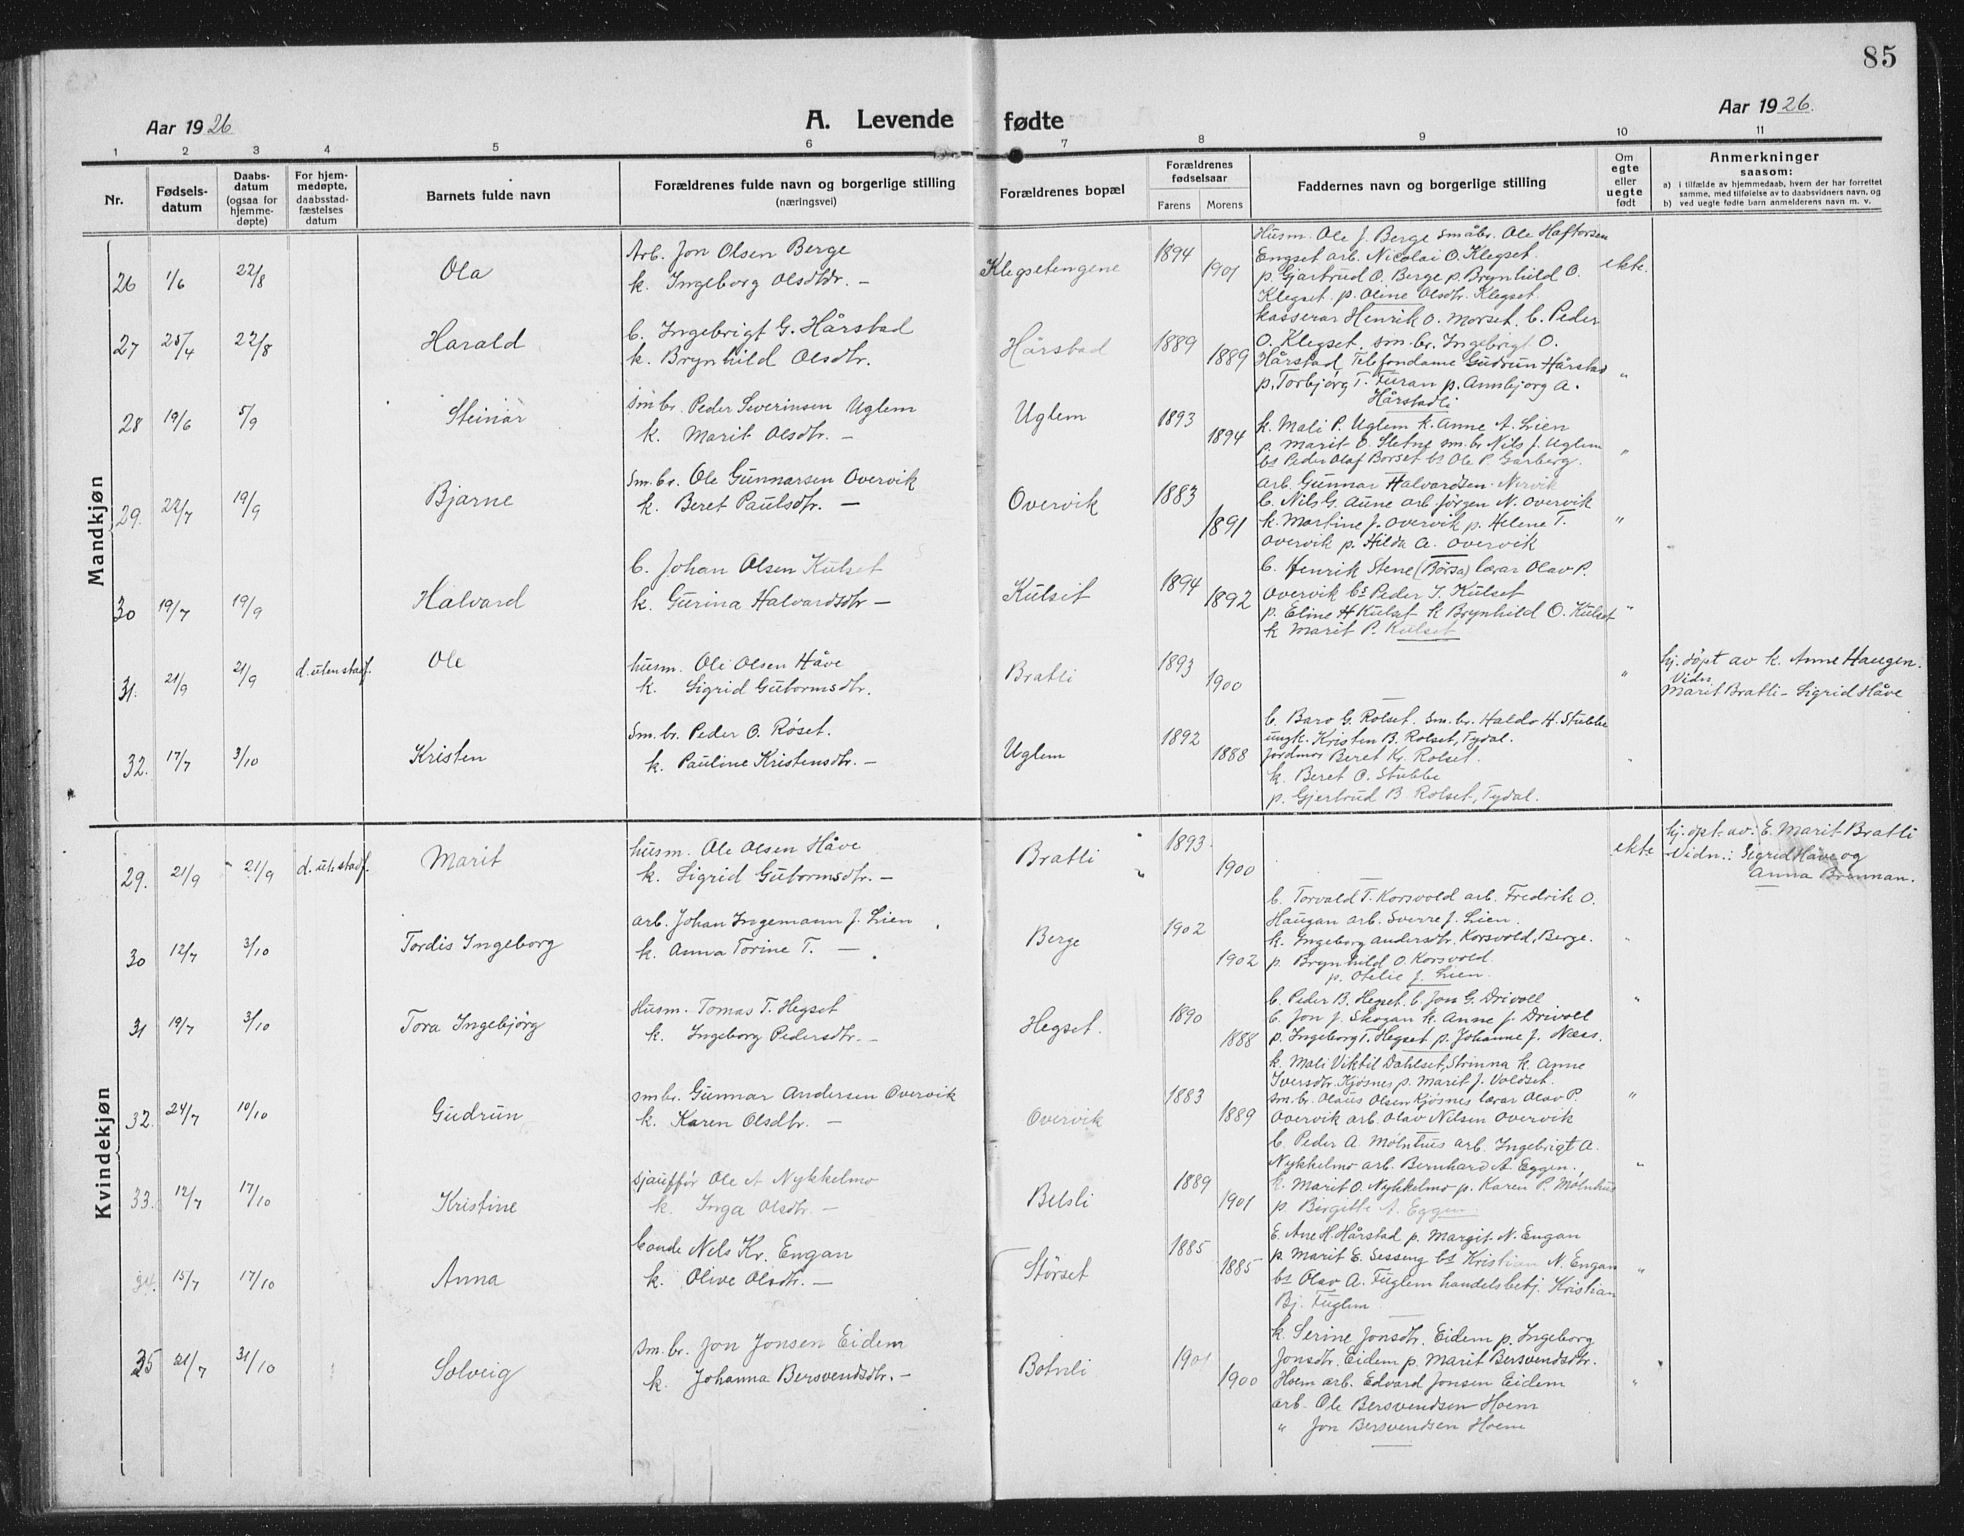 85
Aar 1926
A. Levende fødte
Aar 1926.
1 2 3 4 5 6 7 8 9 10 11
Nr.
Fødsels-
datum
Daabs-
datum
(ogsaa for
hjemme-
døpte)
For hjem-
medøpte,
daabsstad-
fæstelses
datum
Barnets fulde navn
Forældrenes fulde navn og borgerlige stilling
(næringsvei)
Forældrenes bopæl
Forældrenes
fødselsaar
Farens Morens
Faddernes navn og borgerlige stilling
Om
egte
eller
uegte
født
Anmerkninger
saasom:
a) i tilfælde av hjemmedaab, hvem der har forrettet
samme, med tilføielse av to daabsvidners navn, og
b) ved uegte fødte barn anmelderens navn m. v.
Mandkjøn
26 1/6 22/8 Ola
Arb. Jon Olsen Berge
k. Ingeborg Olsdtr. —
Klegsetengene 1894 1901
Husm. Ole J. Berge småbr. Ole Haftorsen
Engset arb. Nicolai O. Klegset.
p. Gjartrud O. Berge p. Brynhild O.
Klegset. p. Oline Olsdtr. Klegset.
ekte.
27 25/4 22/8 Harald
b. Ingebrigt G. Hårstad
k. Brynhild Olsdtr.
Hårstad 1889 1889
kasserar Henrik O. Morset. b. Peder
O. Klegset. sm. br. Ingebrigt O.
Hårstad Telefondame Gudrun Hårstad
p. Torbjørg T. Furan p. Annbjorg A.
Hårstadli
"
28 19/6 5/9 Steinar
Smbr. Peder Severinsen Uglem
k. Marit Olsdtr. —
Uglem 1893 1894
k. Mali P. Uglem k. Anne A. Lien
p. Marit O. Sletne sm. br Nils J. Uglem
bs Peder Olaf Borset bs Ole P. Garberg.
"
29. 22/7 19/9 Bjarne
Sm. br. Ole Gunnarsen Overvik
k. Beret Paulsdtr. —
Overvik 1883 1891
arb. Gunnar Halvardsen Nervik
b. Nils G. Aune arb Jørgen N. Overvik
k. Martine J. Overvik p. Helene T.
Overvik p. Hilda A. Overvik
"
30 19/7 19/9 Halvard
b. Johan Olsen Kulset
k. Gurina Halvardsdtr —
Kulset 1894 1892
b. Henrik Stene (Børsa) lærar Olav P.
Overvik bs Peder T. Kulset
p. Eline H Kulset k Brynhild O. Kulset
k Marit P. Kulset
"
31. 21/9 21/9 d. uten stadf. Ole
husm. Ole Olsen Håve
k. Sigrid Gutormsdtr.
Bratli 1893 1900
"
hj. døpt av k. Anne Haugen.
Vidn
Marit Bratli – Sigrid Håve
32. 17/7 3/10 Kristen
Sm. br. Peder O. Røset.
k. Pauline Kristensdtr. —
Uglem 1892 1888
b. Baro G. Rolset. Sm. br. Haldo H. Stubbe
ungk. Kristen B. Rolset, Tydal.
jordmor Beret Kr. Rolset.
k. Beret O. Stubbe
p. Gjertrud B Rolset, Tydal.
Kvindekjøn
29. 21/9 21/9 d. ute stadf. Marit
husm. Ole Olsen Håve
k. Sigrid Gutormsdtr. —
Bratli 1893 1900
ekte
hj. døpt av: E. Marit Bratli
Vidn.: Sigrid Håve og
Anna Brennan.
30 12/7 3/10 Tordis Ingeborg
arb. Johan Ingemann J. Lien
k. Anna Torine T. —
Berge 1902 1902
b. Torvald T. Korsvold arb. Fredrik O.
Haugan arb. Sverre J. Lien.
k. Ingeborg Andersdtr. Korsvold, Berge.
p. Brynhild O. Korsvold
p. Otelie J. Lien.
"
31 19/7 3/10 Tora Ingebjörg
Husm. Tomas T. Hegset
k. Ingeborg Pedersdtr. —
Hegset. 1890 1888
b. Peder B. Hegset. b. Jon G. Drivoll
b. Jon J. Skogan k. Anne J. Drivoll
p. Ingeborg T. Hegset p. Johanne J. Næss.
"
32. 24/7 10/10 Gudrun
smbr. Gunnar Andersen Overvik
k. Karen Olsdtr. —
Overvik 1883 1889
k. Mali Viktil Dahlset, Strinna k. Anne
Iversdtr. Kjøsnes p. Marit J. Voldset.
sm. br. Olaus Olsen Kjøsnes lærar Olav P.
Overvik arb. Olav Nilsen Overvik
"
33. 12/7 17/10 Kristine
Sjauffør Ole A Nykkelmo
k. Inga Olsdtr. —
Belsli 1889 1901
b. Peder A. Mølnhus arb. Ingebrigt A.
Nykkelmo arb. Bernhard A. Eggen.
k. Marit O. Nykkelmo p. Karen P. Mølnhus
p. Birgitte A. Eggen.
"
34. 15/7 17/10 Anna
bonde Nels Kr. Engan
k. Olive Olsdtr. —
Størset 1885 1885
E. Ane H. Hårstad p. Margit N. Engan
p. Marit E. Sesseng bs Kristian N. Engan
bs Olav A. Fuglem handelsbetj. Kristian
Bj. Fuglem
"
35 21/7 31/10 Solveig
Sm. br. Jon Jonsen Eidem
k. Johanna Bersvendsdtr. —
Botnli 1901 1900
k. Serine Jonsdtr. Eidem p. Ingeborg
Jonsdtr. Eidem p. Marit Bersvendsdtr.
Hoem arb. Edvard Jonsen Eidem
arb. Ole Bersvendsen Hoem
" Jon Bersvendsen Hoem
"